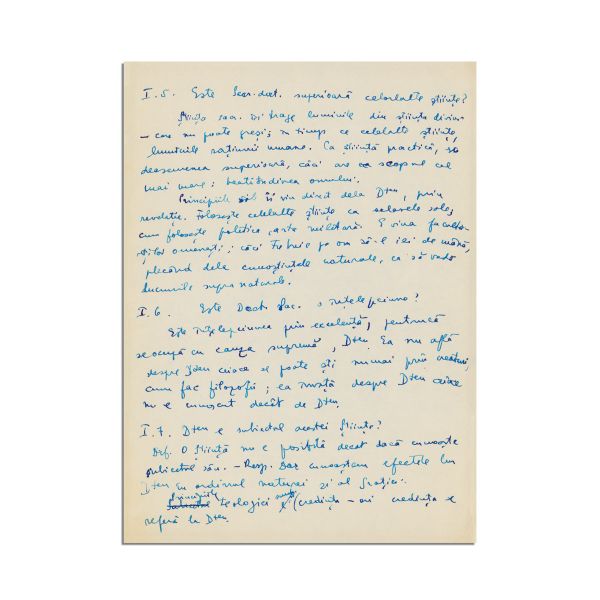 I.5. Este Sacr. doct. superioară celorlalte științe?
Știința sacr. își trage luminile din știința divină
– care nu poate greși, în timp ce celelalte științe,
luminile rațiunii umane. Ca știință practică, e
deasemenea superioară, căci are ca scopul cel
mai mare: beatitudinea omului.
Principiile ei îi vin direct dela Dzeu, prin
revelație. Folosește celelalte științe ca
cum folosește politica, arta militară. E vina
omenești; căci trebuie pe om să-l iei de mână,
plecând dela cunoștințele naturale, ca să vadă
lucrurile supranaturale.
I.6. Este Doct. Sac. o înțelepciune?
Este înțelepciunea prin excelență, pentrucă
se ocupă cu cauza supremă, Dzeu. Ea nu află
despre Dzeu ceiace se poate ști numai prin creaturi,
cum fac filozofii; ea învață despre Dzeu ceiace
nu e cunoscut decât de Dzeu.
I.7. Dzeu e subiectul acestei științe?
Dif. O știință nu e posibilă decât dacă cunoaște
subiectul său. – Resp. Dar cunoaștem efectele lui
Dzeu în ordinul naturei și al grației.
Principiile
teologiei sunt (credința – ori credința se
referă la Dzeu.